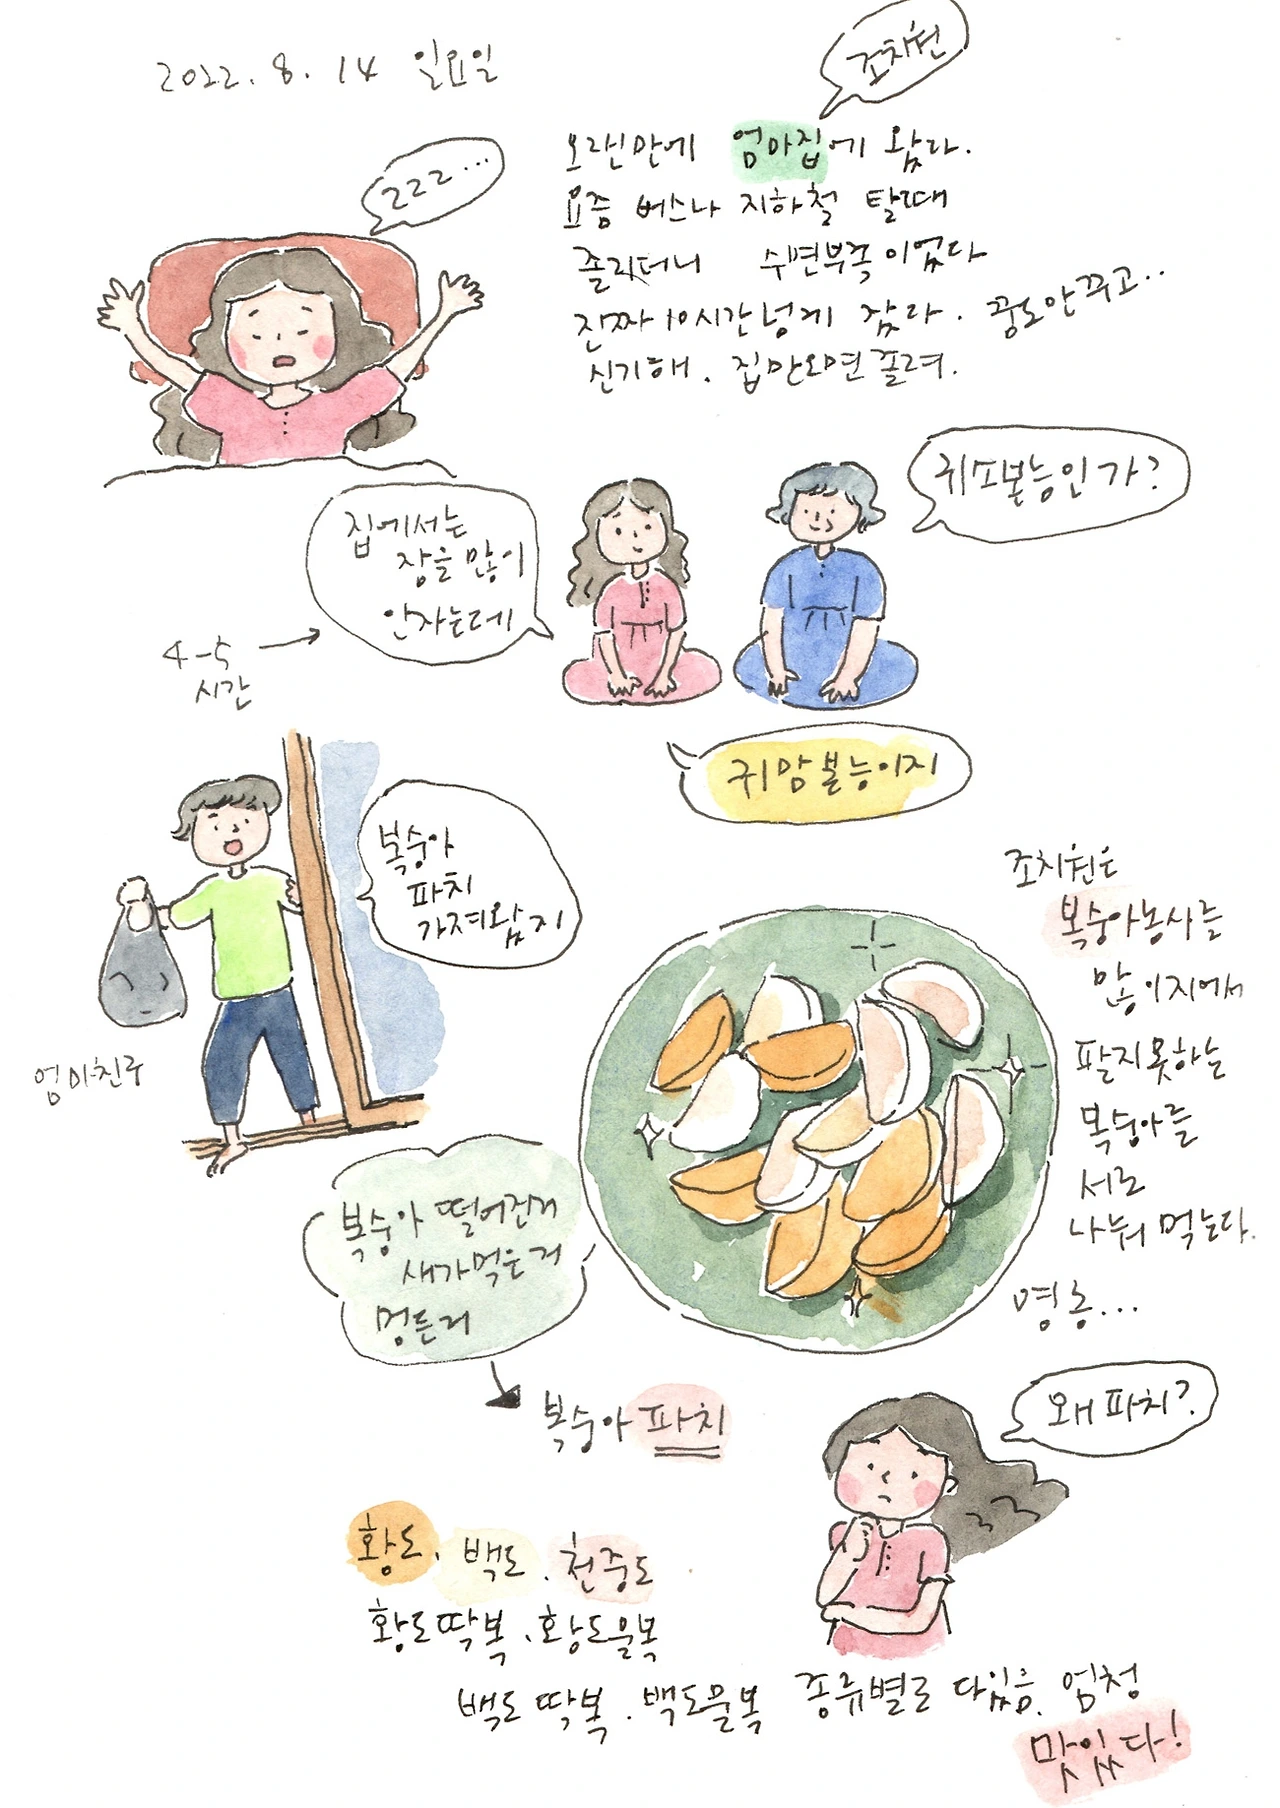 2022. 8. 14 일요일
조치원
오랜만에 엄마집에 왔다.
요즘 버스나 지하철 탈때
졸리더니 수면부족이었다
진짜 10시간 넘게 잤다. 꿈도 안꾸고..
신기해. 집만오면 풀려.
zzz...
귀소본능인가?
집에서는
잠을 많이
안자는데
4-5
시간
귀맘본능이지
복숭아
파치
가져왔지
엄마친구
조치원은
복숭아농사를
많이지어서
팔지못하는
복숭아를
서로
나눠 먹는다.
복숭아 떨어진거
새가먹은거
멍든거
복숭아 파치
왜 파치?
황도. 백도. 천중도
황도딱복. 황도물복
백도딱복. 백도물복 종류별로 다있음. 엄청
맛있다!